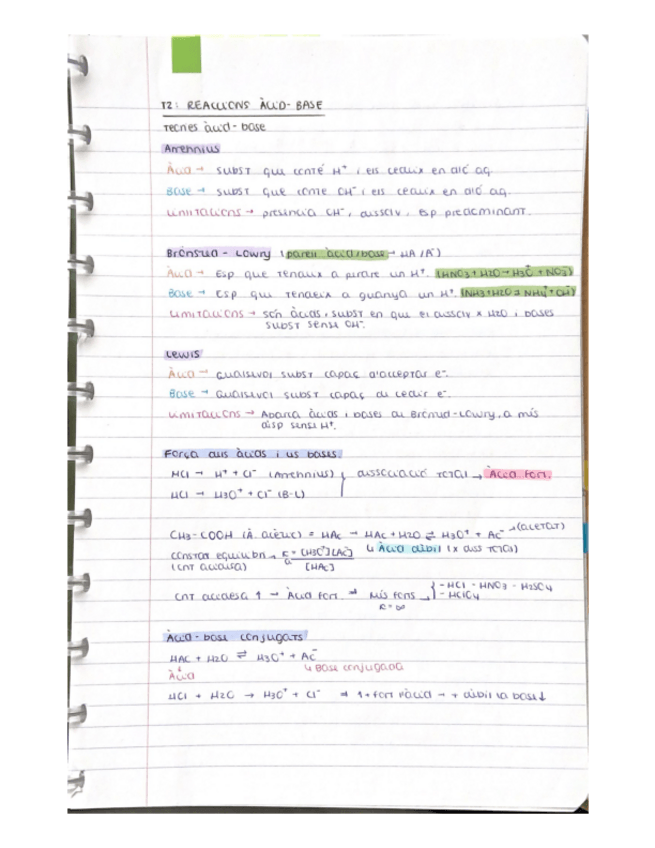 T2: REACCIONS ÀCID-BASE
Teories àcid-base
Arrhenius
Àcid → subst que conté H⁺ i els cedeix en dió aq.
Base → subst que conté OH⁻ i els cedeix en dió aq.
Limitacions → presència OH⁻, dissolv, esp predominant.
Brönsted-Lowry (parell àcid/base → HA/A⁻)
Àcid → Esp que tendeix a perdre un H⁺. (HNO3 + H2O → H3O⁺ + NO3⁻)
Base → Esp que tendeix a guanyà un H⁺. (NH3 + H2O ⇌ NH4⁺ + OH⁻)
Limitacions → són àcids, subst en que el dissolv x H2O i bases
subst sense OH⁻.
Lewis
Àcid → Qualsevol subst capaç d'acceptar e⁻.
Base → Qualsevol subst capaç de cedir e⁻.
Limitacions → Abarca àcids i bases de Brönsted-Lowry, a més
disp sense H⁺.
Força dels àcids i les bases.
HCl → H⁺ + Cl⁻ (Arrennius) dissociació total → Àcid fort.
HCl → H3O⁺ + Cl⁻ (B-L)
CH3-COOH (À. acètic) = HAc → HAc + H2O ⇌ H3O⁺ + Ac⁻ → (acetat)
constat equilibri → Ka = [H3O⁺][Ac⁻] ↳ Àcid dèbil (x diss total)
(cnt acidesa) [HAc]
Cnt acidesa ↑ → Àcid fort ⇒ Més forts → - HCl - HNO3 - H2SO4
K = ∞ - HClO4
Àcid-base conjugats
HAc + H2O ⇌ H3O⁺ + Ac⁻
Àcid ↳ Base conjugada
HCl + H2O → H3O⁺ + Cl⁻ ⇒ ↑ + fort l'àcid → + dèbil la base ↓